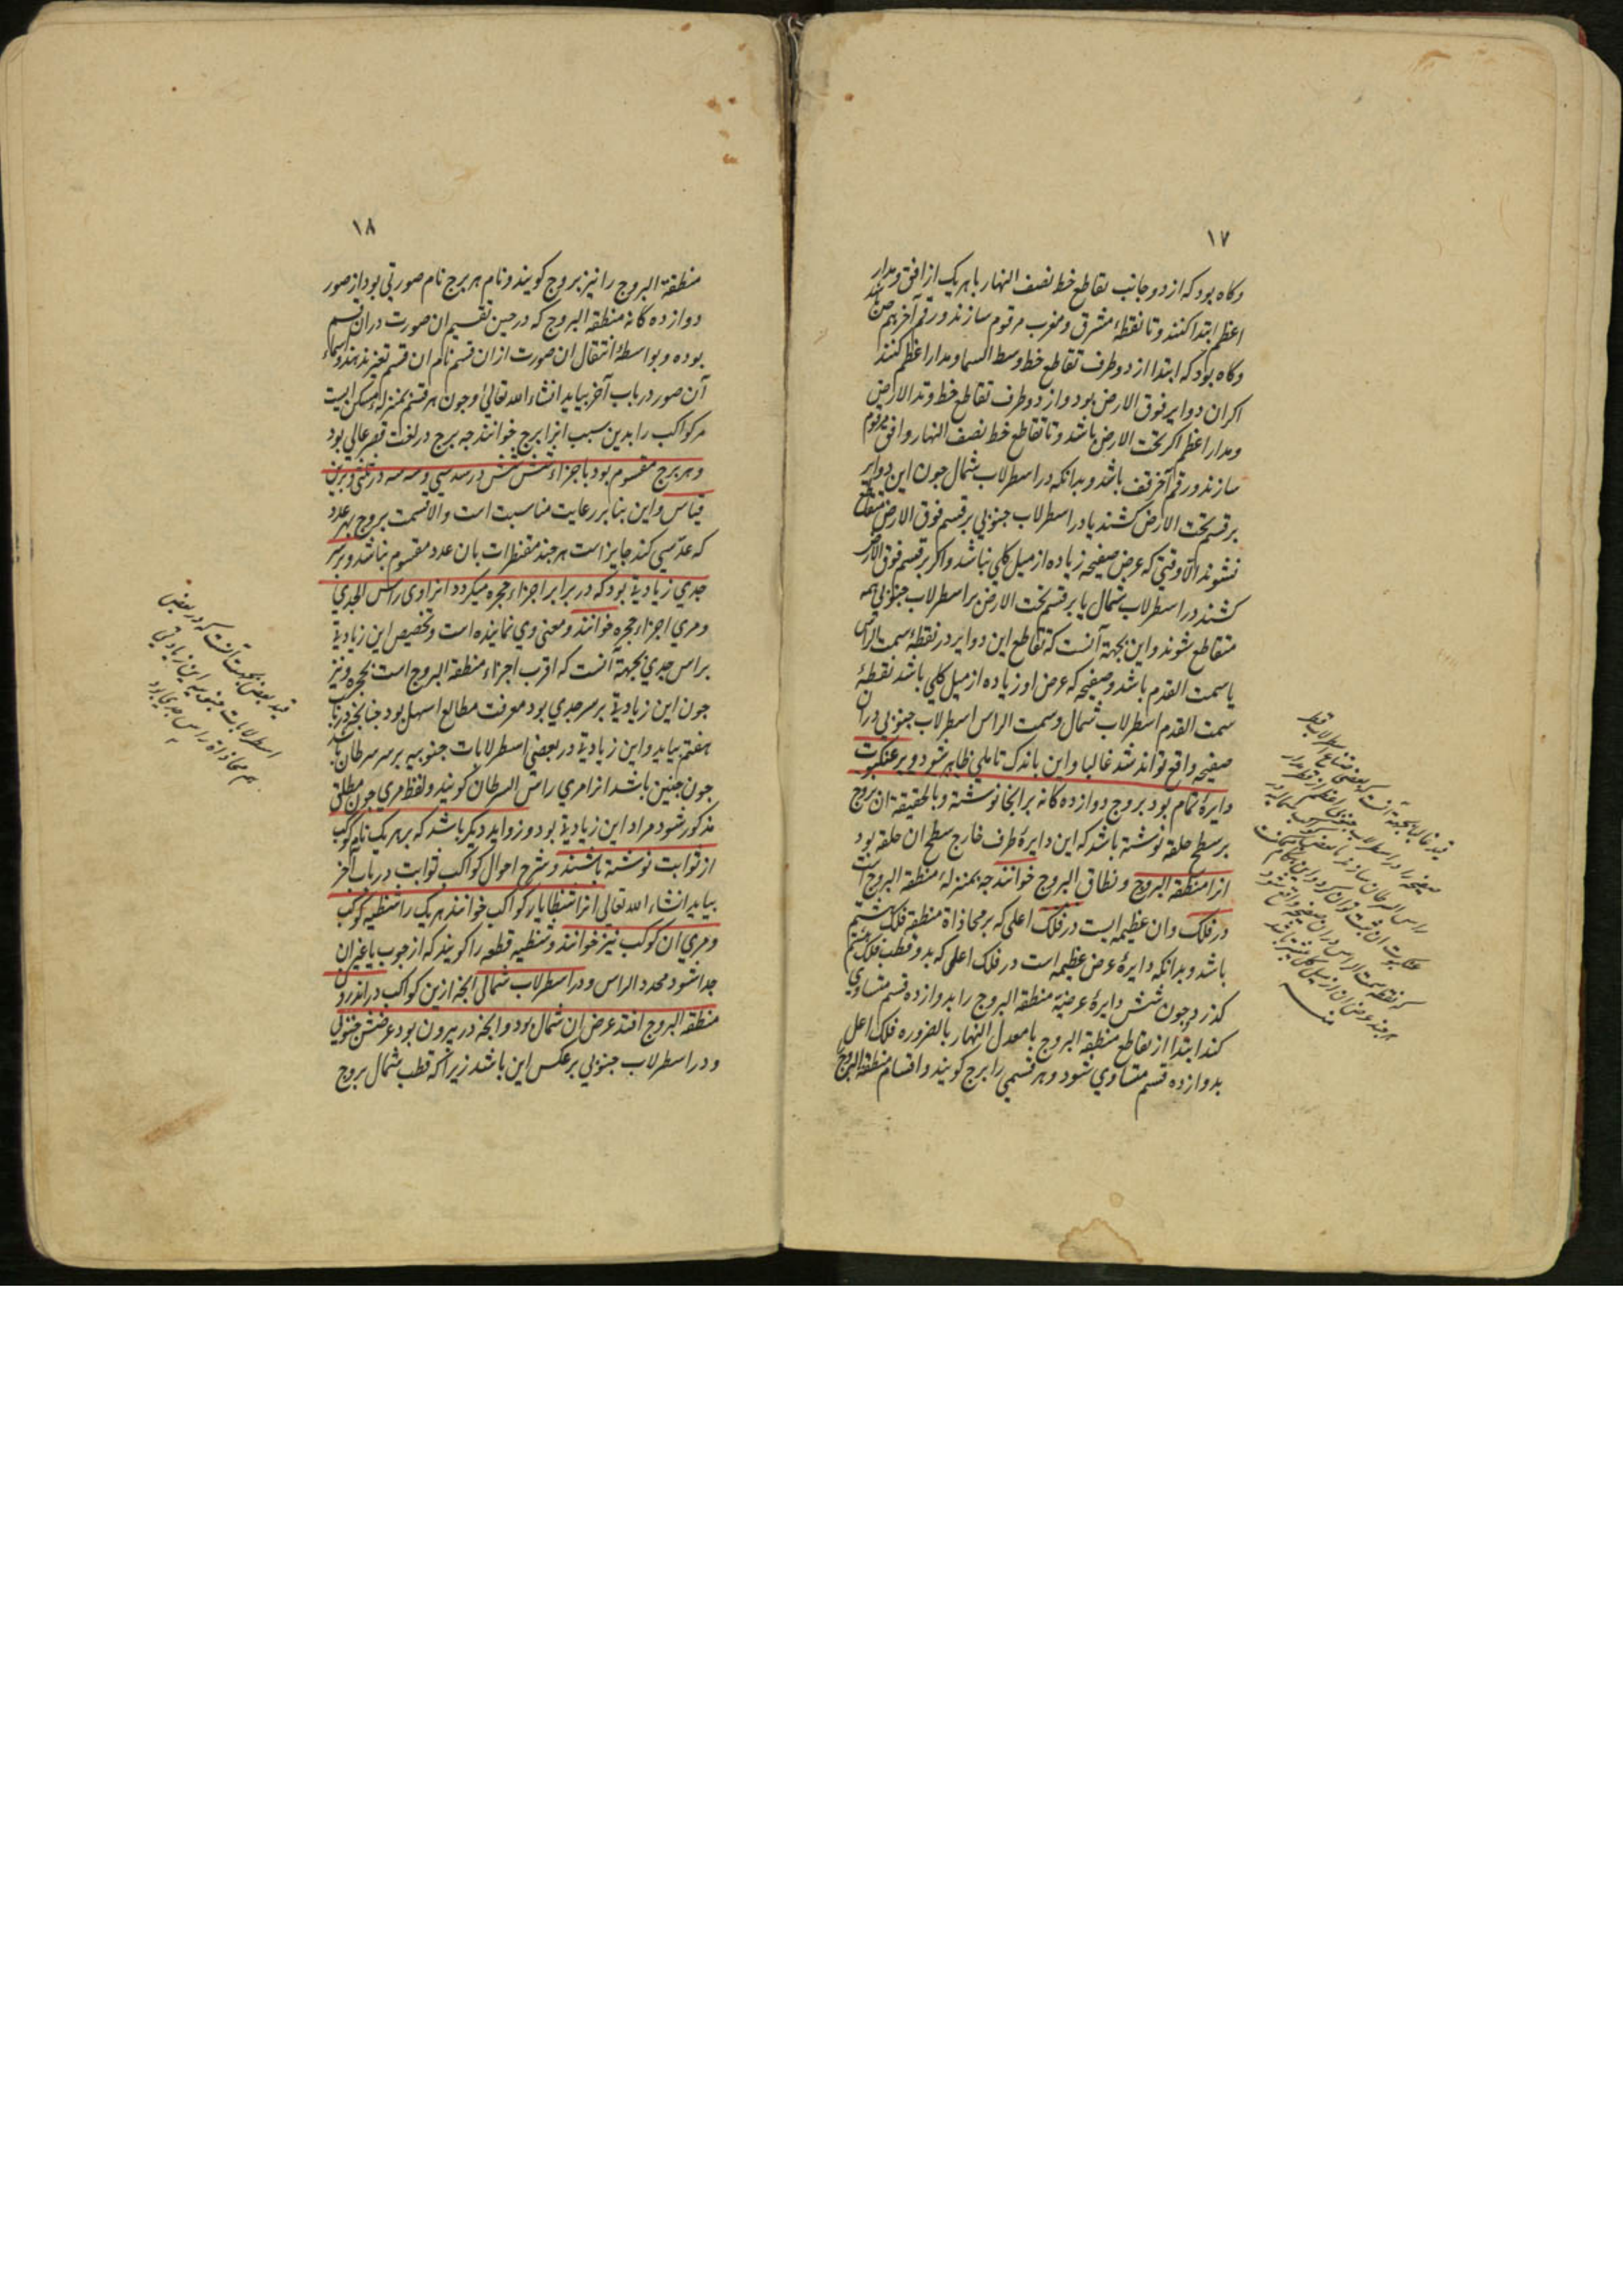 ١٧
وکاه بود که از دو جانب تقاطع خط نصف النهار با هر یک از افق و مدار
اعظم ابتدا کنند و تا نقطهٔ مشرق و مغرب مرقوم سازند و رقم آخر هم ص باشد
وکاه بود که ابتدا از دو طرف تقاطع خط وسط السما و مدار اعظم کنند
اکر ان دوایر فوق الارض بود و از دو طرف تقاطع خط وتد الارض
و مدار اعظم اکر تحت الارض باشد و تا تقاطع خط نصف النهار و افق مرقوم
سازند و رقم آخر قف باشد و بدانکه در اسطرلاب شمالی جون این دوایر
بر قسم تحت الارض کشند یا در اسطرلاب جنوبی بر قسم فوق الارض متقاطع
نشوند الا وقتی که عرض صفیحه زیاده از میل کلی نباشد و اکر بر قسم فوق الارض
کشند در اسطرلاب شمالی یا بر قسم تحت الارض بر اسطرلاب جنوبی همه
متقاطع شوند و این بجهة آنست که تقاطع این دوایر در نقطهٔ سمت الراس
یا سمت القدم باشد و صفیحه که عرض او زیاده از میل کلی باشد نقطهٔ
سمت القدم اسطرلاب شمالی و سمت الراس اسطرلاب جنوبی در ان
صفیحه واقع نواند شد غالبا و این باندک تاملی ظاهر شود و بر عنکبوت
دایرهٔ تمام بود بروج دوازده کانه بر انجا نوشته و بالحقیقة ان بروج
بر سطح حلقه نوشته باشد که این دایرهٔ طرف خارج سطح ان حلقه بود
انرا منطقة البروج و نطاق البروج خوانند جه بمنزلهٔ منطقة البروج است
در فلک وان عظیمه ایست در فلک اعلی که بر محاذاة منطقه فلک هشتم
باشد و بدانکه دایرهٔ عرض عظیمه است در فلک اعلی که بدو قطب فلک هشتم
کذرد جون شش دایرهٔ عرضیه منطقة البروج را بدوازده قسم متساوی
کند ابتدا از تقاطع منطقة البروج با معدل النهار بالضروره فلک اعلی
بدوازده قسم متساوی شود و هر قسمی را برج کویند و اقسام منطقة البروج
١٨
منطقة البروج را نیز بروج کویند و نام هر برج نام صورتی بود از صور
دوازده کانه منطقة البروج که در حین تقسیم ان صورت دران قسم
بوده و بواسطهٔ انتقال ان صورت ازان قسم نام ان قسم تغیر ندهند و اسماء
آن صور در باب آخر بیاید انشاء الله تعالی و جون هر قسم بمنزلهٔ مسکن ایست
مر کواکب را بدین سبب انرا برج خوانند جه برج در لغت قصر عالی بود
و هر برج مقسوم بود باجزاء شش شش در سدسی و سه سه در ثلثی و برین
قیاس و این بنا بر رعایت مناسبت است و الا قسمت بروج بهر عدد
که عدّ سی کند جایز است هر جند مقنطرات بان عدد مقسوم نباشد و بر سر
جدی زیادیهٔ بود که در برابر اجزاء حجره میکردد انرا وی راس الجدی
و مری اجزاء حجره خوانند و معنی وی نماینده است و تخصیص این زیادیهٔ
براس جدی بجهة آنست که اقرب اجزاء منطقة البروج است بحجره و نیز
جون این زیادیهٔ بر سر جدی بود معرفت مطالع اسهل بود جنانجه در باب
هفتم بیاید و این زیادیهٔ در بعضی اسطرلابات جنوبیه بر سر سرطان باشد
جون جنین باشد انرا مری راس السرطان کویند و لفظ مری جون مطلق
مذکور شود مراد این زیادیهٔ بود و زواید دیکر باشد که بر هر یک نام کوکب
از ثوابت نوشته باشند و شرح احوال کواکب ثوابت در باب آخر
بیاید انشاء الله تعالی انرا شظایا کواکب خوانند هر یک را شظیه کوکب
و مری ان کوکب نیز خوانند و شظیه قطعه را کویند که از جوب یا غیر ان
جدا شود محدد الراس و در اسطرلاب شمالی انجه ازین کواکب در اندرون
منطقة البروج افتد عرض ان شمالی بود و انجه در بیرون بود عرضش جنوبی
و در اسطرلاب جنوبی بر عکس این باشد زیرا که قطب شمال بروج
قید بعض بجهت آنست که در بعض
اسطرلابات جنوبیه این زیادتی
هم محاذاة راس جدی دارد